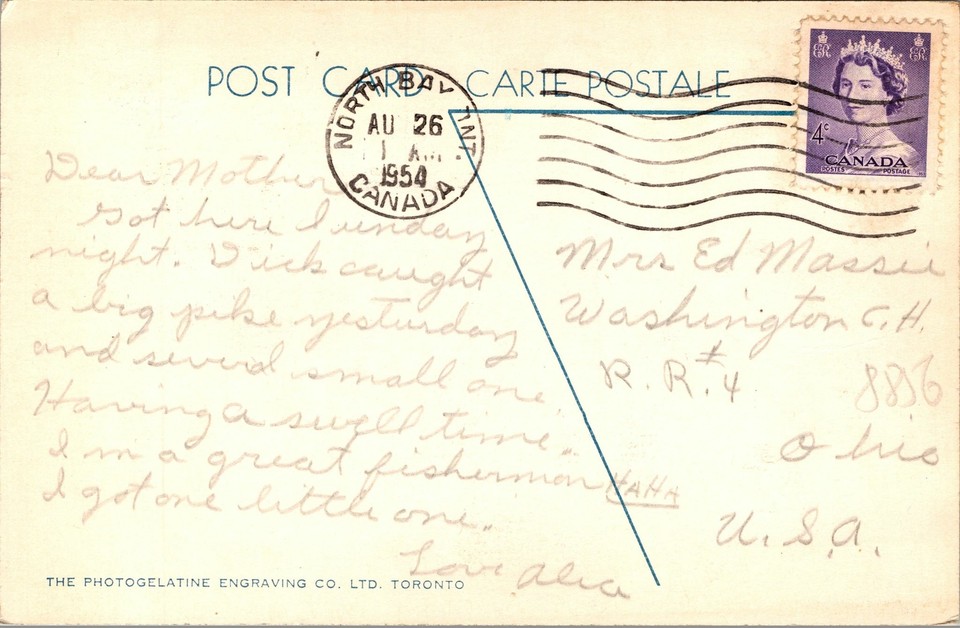 POST CARD CARTE POSTALE
NORTH BAY ONT
AU 26
1 AM
1954
CANADA
ER ER
4c
CANADA
POSTES POSTAGE
Dear Mother
Got here Sunday
night. Dick caught
a big pike yesturday
and severd small one.
Having a swell time.
I m a great fisherman HAHA
I got one little one.
Love Alice
Mrs Ed Massie
Washington C.H.
R. R. #4
8856
Ohio
U.S.A.
THE PHOTOGELATINE ENGRAVING CO. LTD. TORONTO